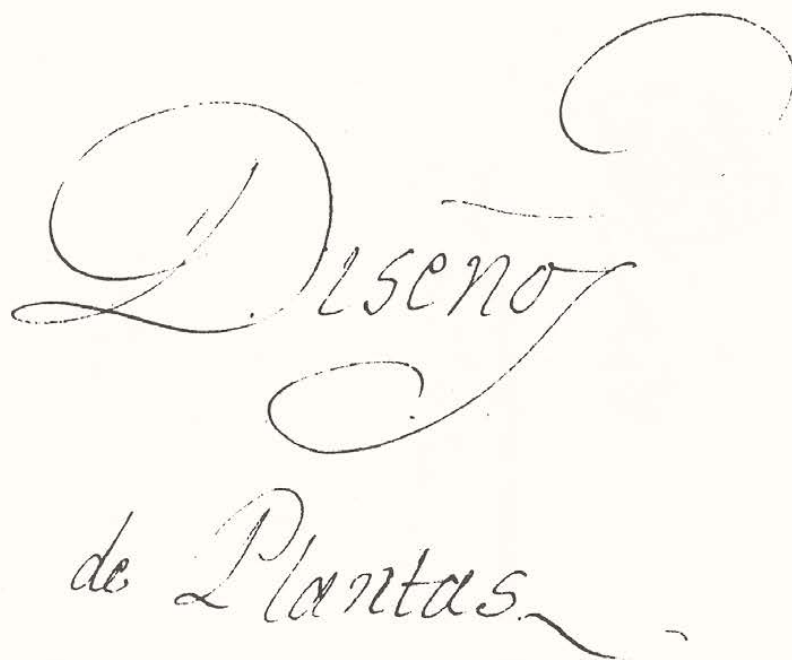 Diseño
de Plantas